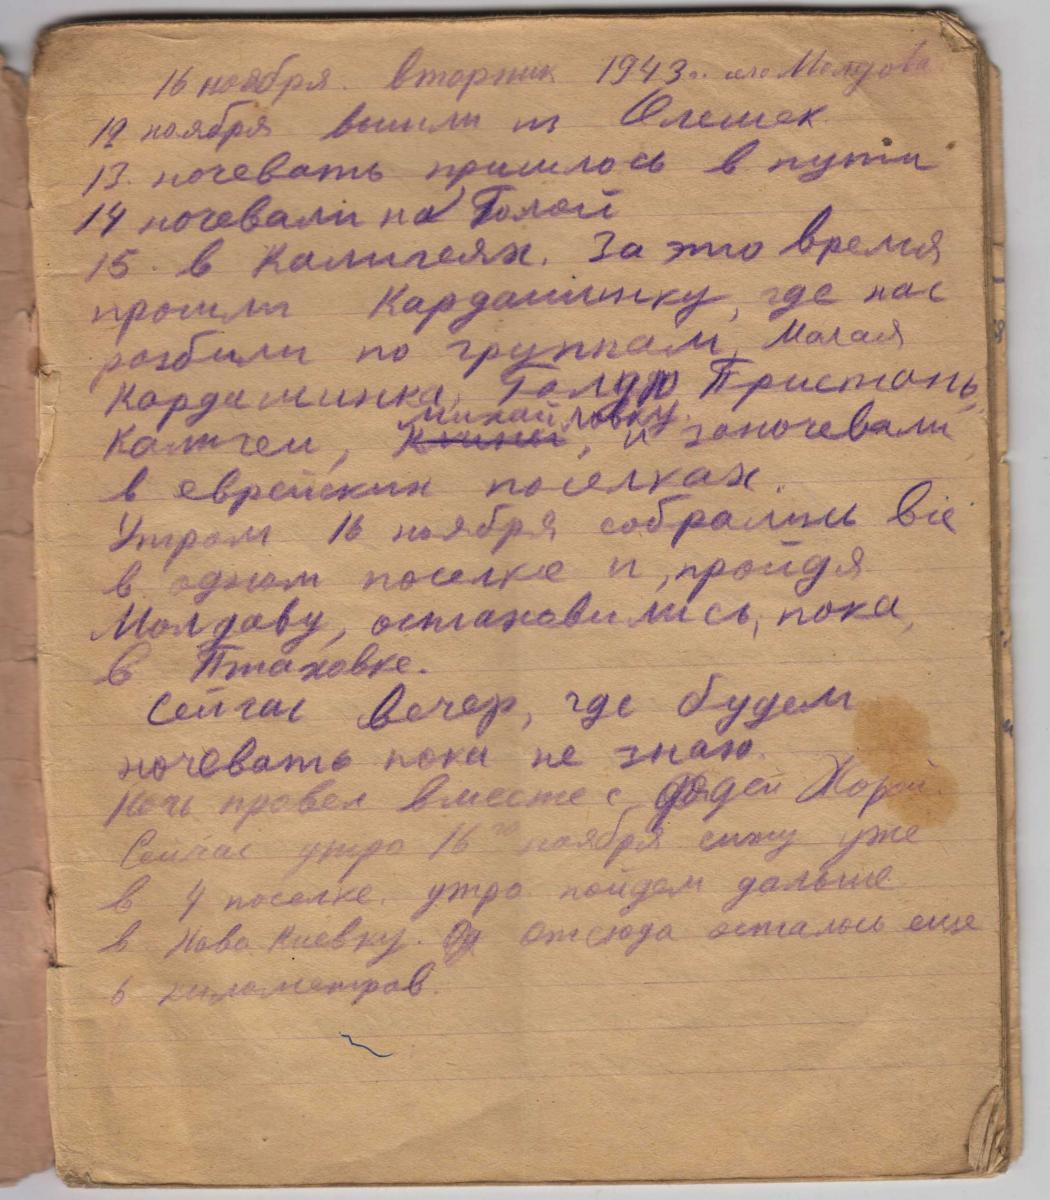 16 ноября. вторник 1943 г. село Молдова
12 ноября вышли из Олешек
13. ночевать пришлось в пути
14 ночевали на Голой
15. в Калигеях. За это время
прошли Кардашинку, где нас
розбили по группам, Малая
Кардашинка, Голую Пристань,
Калигеи, Михайловку, и заночевали
в еврейских поселках.
Утром 16 ноября собрались все
в одном поселке и, пройдя
Молдаву, остановились, пока,
в Птаховке.
Сейчас вечер, где будем
ночевать пока не знаю.
Ночь провел вместе с дядей Жорой.
Сейчас утро 16го ноября сижу уже
в 4 поселке. утро пойдем дальше
в Ново Киевку. Отсюда осталось еще
6 километров.